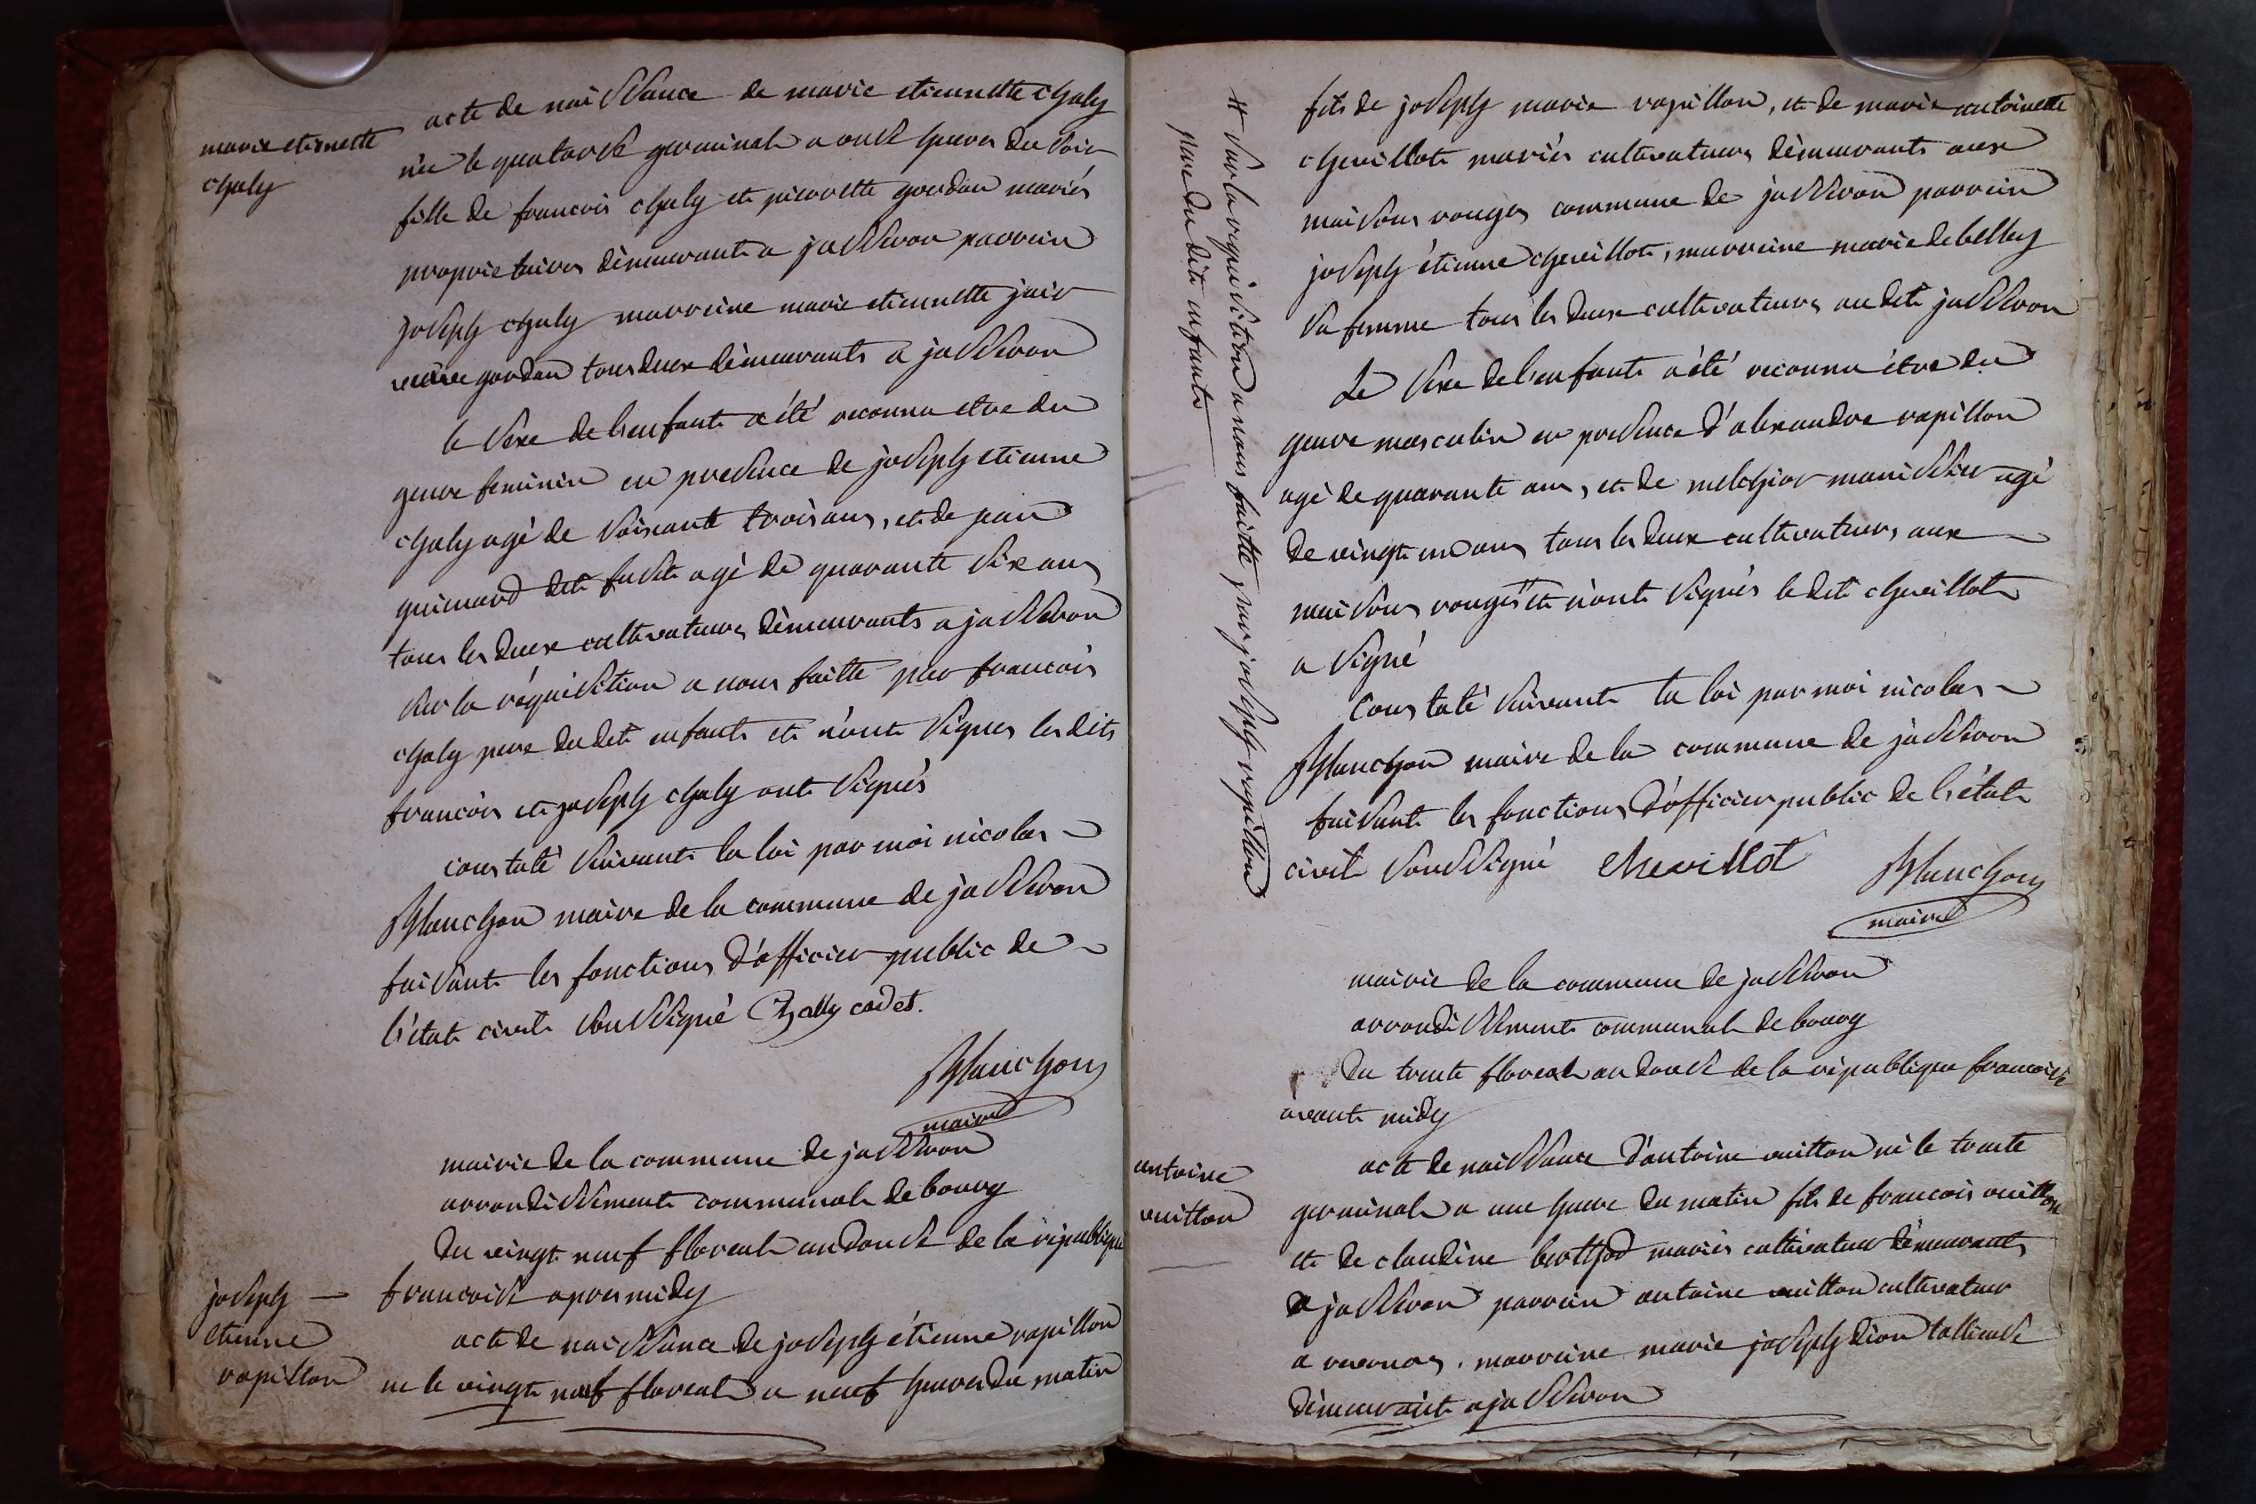 marie etiennette
chaly
acte de naissance de marie etiennette chaly
née le quatorze germinal a onze heures du soir
fille de francois chaly et pierrette gordan mariés
proprietaires démeurant a jasseron parrein
joseph chaly marreine marie etiennette jair
veuve gordan tous deux démeurants a jasseron
le sexe de l'enfant a été reconnu etre du
genre feminin en presence de joseph etienne
chaly agé de soixante trois ans, et de
guimard dit agé de quarante six ans
tous les deux cultivateurs démeurants a jasseron
sur la réquisition a nous faitte par francois
chaly pere du dit enfant et n'ont signes les dits
francois et joseph chaly ont signés
constaté suivant la loi par moi nicolas
Blanchon maire de la commune de jasseron
faisant les fonctions d'officier public de
l'état civil soussigné Chally cadet.
Blanchon
maire
mairie de la commune de jasseron
arrondissement communal de bourg
du vingt neuf floreal an douze de la république
francoise apres midy
joseph
etienne
rapillon
acte de naissance de joseph étienne rapillon
ne le vingt neuf floreal a neuf heures du matin
# sur la requisition a nous faitte par joseph rapillon
pere du dit enfant
fils de joseph marie rapillon, et de marie antoinette
chevillot mariés cultivateurs démeurants aux
maisons rouges commune de jasseron parrein
joseph étienne chevillot, marreine marie debelley
sa femme tous les deux cultivateurs au dit jasseron
Le sexe de l'enfant a été reconnu étre du
genre masculin en presence d'alexandre rapillon
agé de quarante ans, et de melchior manissier agé
de vingt un ans tous les deux cultivateurs aux
maisons rouges # et n'ont signés le dit chevillot
a signé
constaté suivant la loi par moi nicolas
Blanchon maire de la commune de jasseron
faisant les fonctions d'officier public de l'état
civil soussigné chevillot Blanchon
maire
mairie de la commune de jasseron
arrondissement communal de bourg
du trente floreal an douze de la république francoise
avant midy
antoine
vuitton
acte de naissance d'antoine vuitton né le trente
germinal a une heure du matin fils de francois vuitton
et de claudine berthod mariés cultivateur démeurants
a jasseron parrein antoine vuitton cultivateur
a marreine marie joseph dion tallieuse
démeurante a jasseron